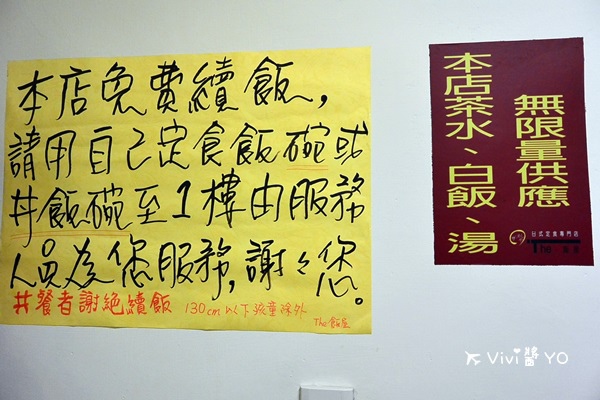 本店免費續飯,
請用自己定食飯碗或
丼飯碗至1樓由服務
人員為您服務,謝々您。
丼餐者謝絕續飯 130cm以下孩童除外
The 飯屋
無限量供應
本店茶水、白飯、湯
日式定食專門店
The
Vivi醬 YO